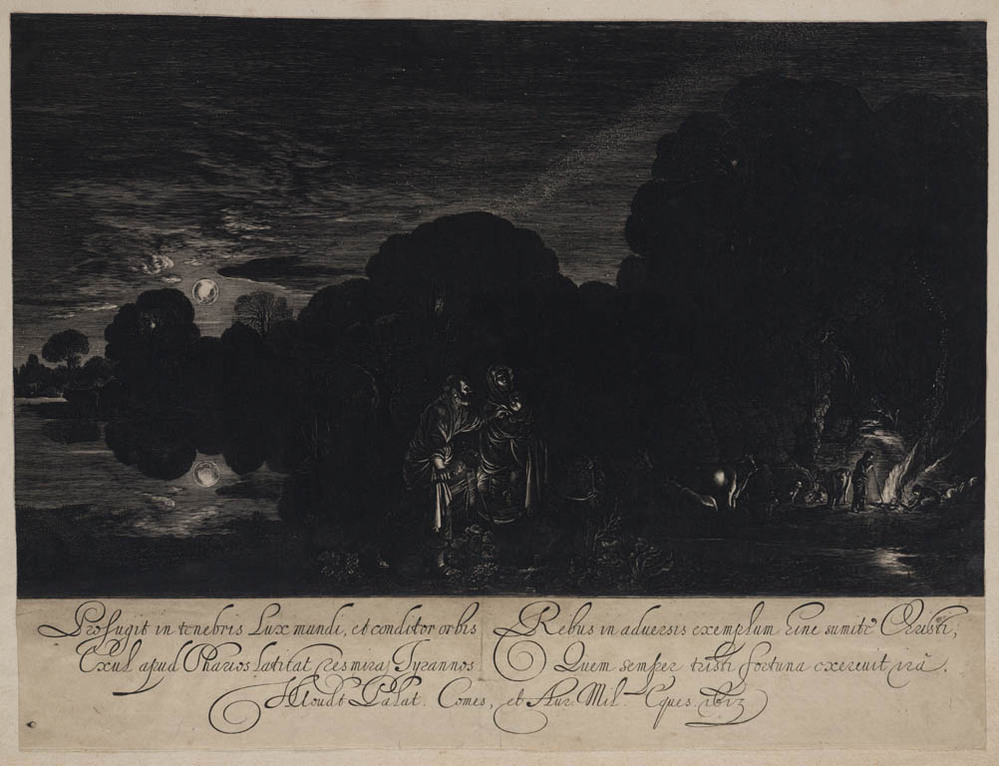 Profugit in tenebris Lux mundi, et conditor orbis
Exul apud Pharios latitat (res mira) Tyrannos.
Rebus in adversis exemplum hinc sumite Christi,
Quem semper tristi fortuna exercuit irâ.
HGoudt Palat. Comes, et Aur. Mil. Eques. 1613